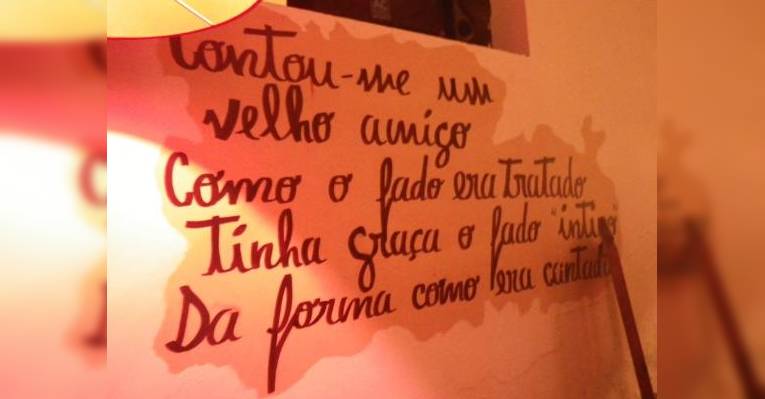 Contou-me um
velho amigo
Como o fado era tratado
Tinha graça o fado "intimo"
Da forma como era cantado